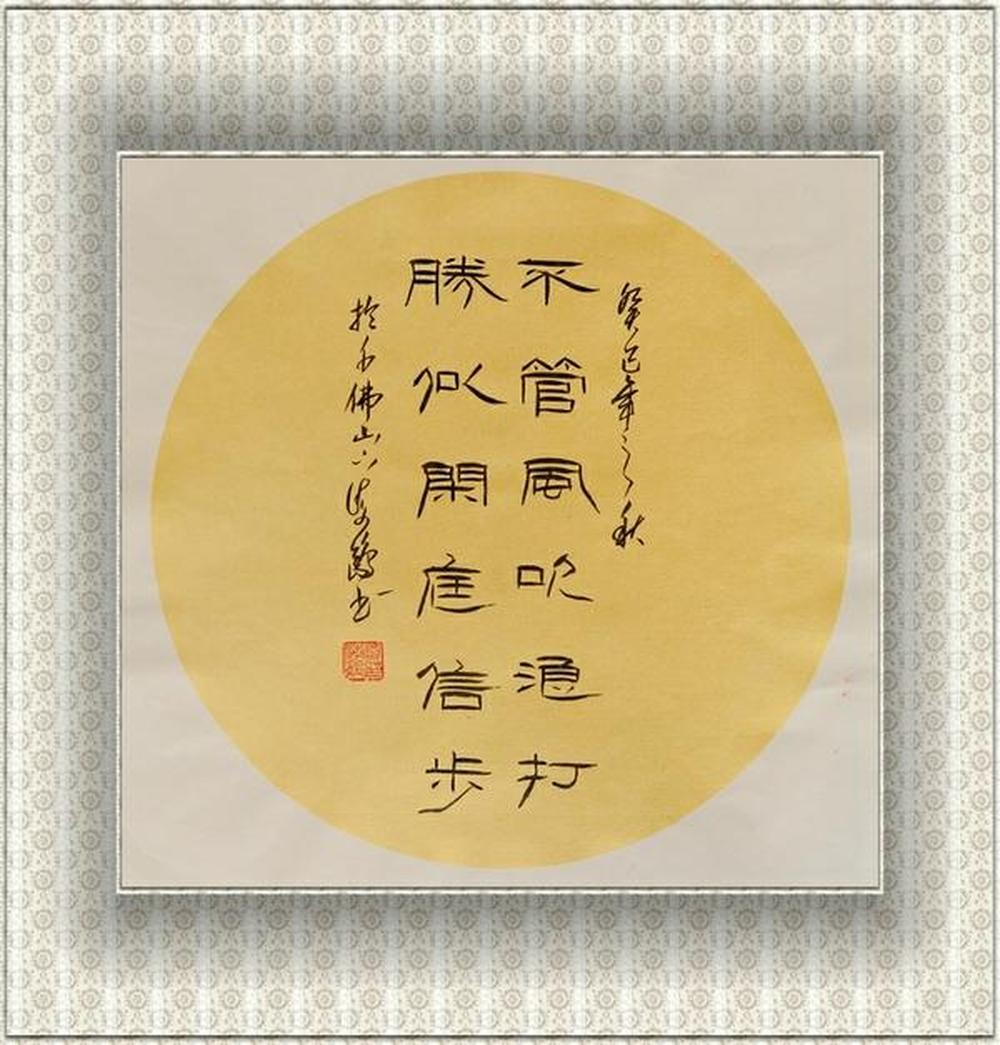 癸巳年之秋
不管風吹浪打
勝似閑庭信步
於千佛山下鶴书